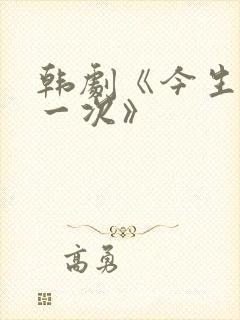 韩剧《今生
一次》
高勇